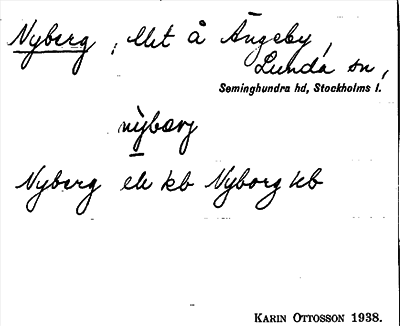 Nyberg, lht å Ängeby,
Lunda sn,
Seminghundra hd, Stockholms l.
nỳbærj
Nyberg ek kb Nyborg kb
KARIN OTTOSSON 1938.